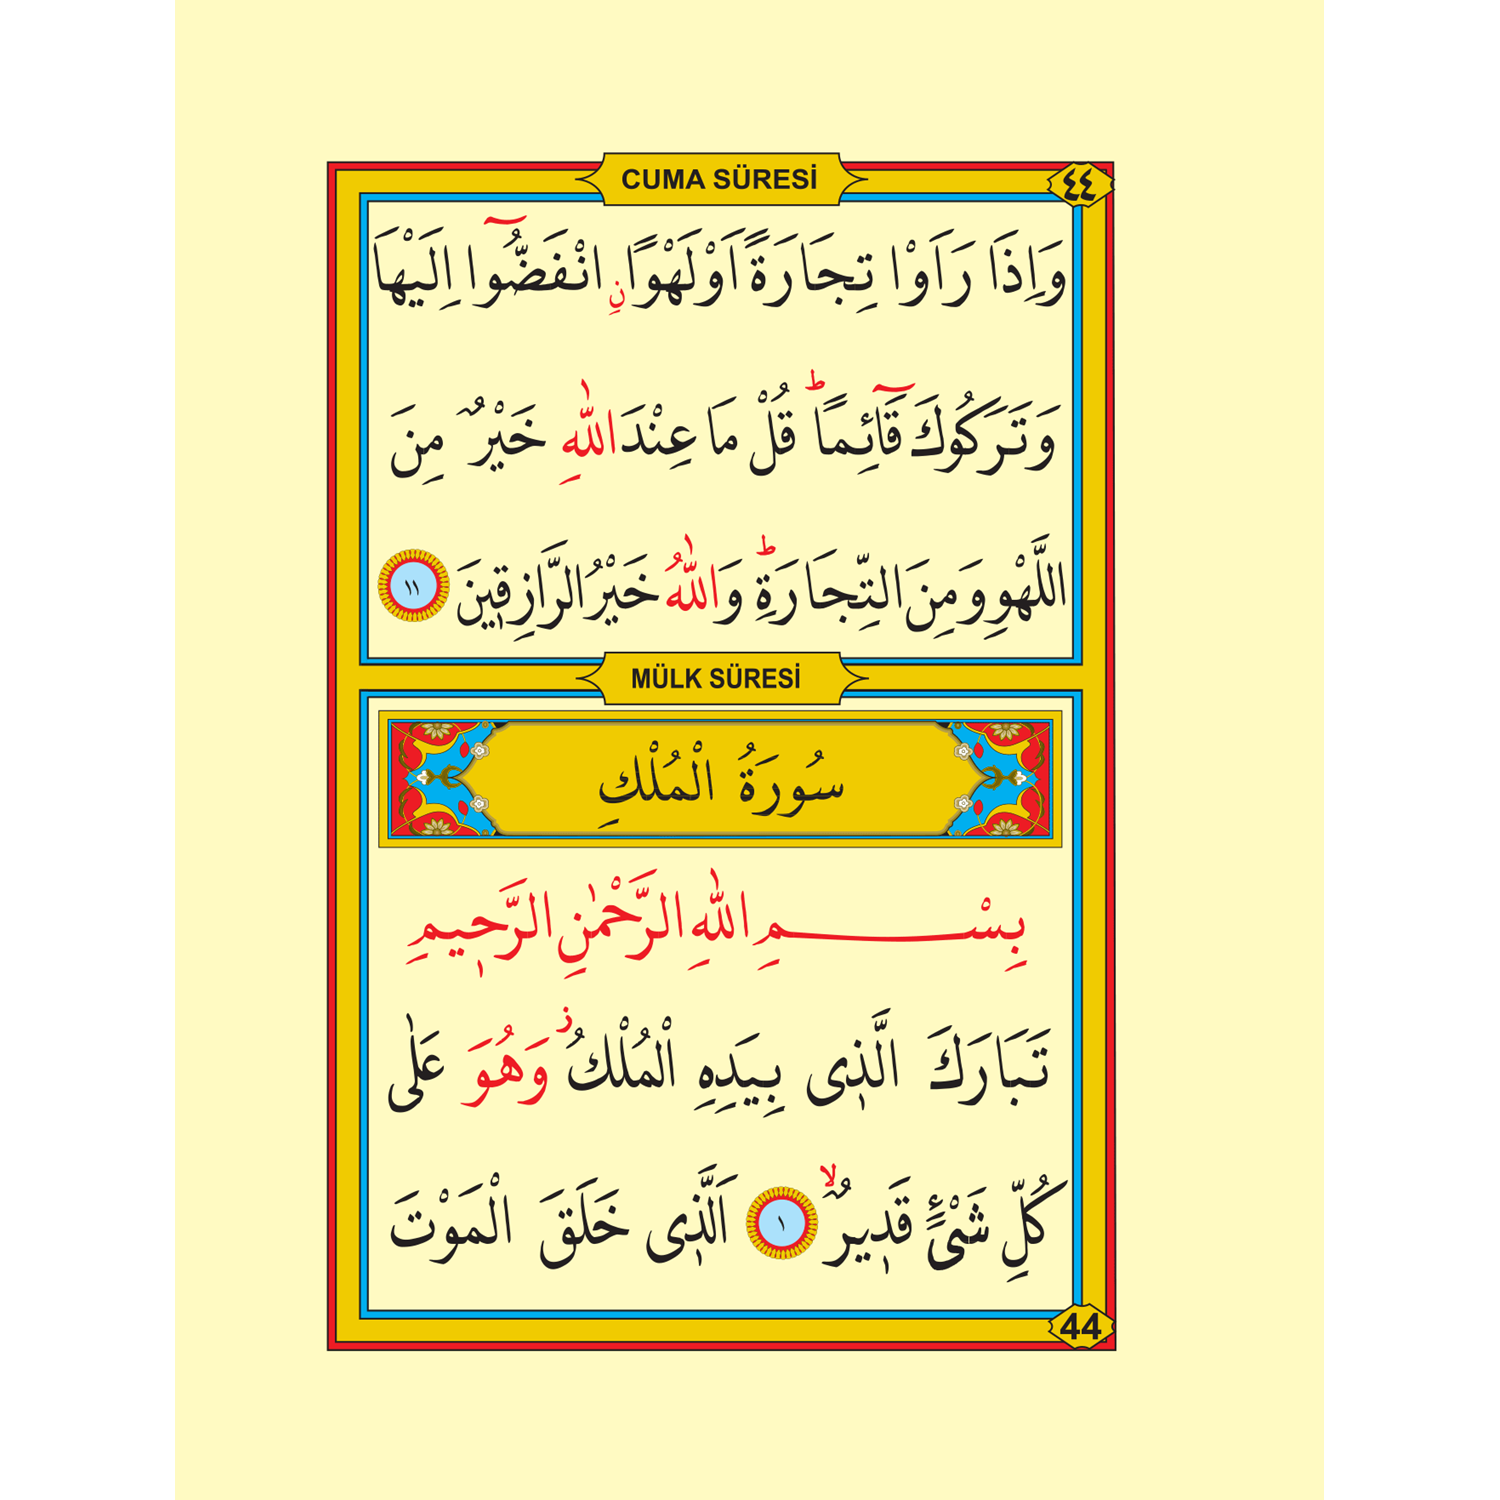 CUMA SÜRESİ
٤٤
وَاِذَا رَاَوْا تِجَارَةً اَوْ لَهْوًا نِ انْفَضُّٓوا اِلَيْهَا
وَتَرَكُوكَ قَٓائِمًا ط قُلْ مَا عِنْدَ اللّٰهِ خَيْرٌ مِنَ
اللَّهْوِ وَمِنَ التِّجَارَةِ ط وَاللّٰهُ خَيْرُ الرَّازِقٖينَ ١١
MÜLK SÜRESİ
سُورَةُ الْمُلْكِ
بِسْمِ اللّٰهِ الرَّحْمٰنِ الرَّحٖيمِ
تَبَارَكَ الَّذٖى بِيَدِهِ الْمُلْكُ ز وَهُوَ عَلٰى
كُلِّ شَىْءٍ قَدٖيرٌ لا ١ اَلَّذٖى خَلَقَ الْمَوْتَ
44